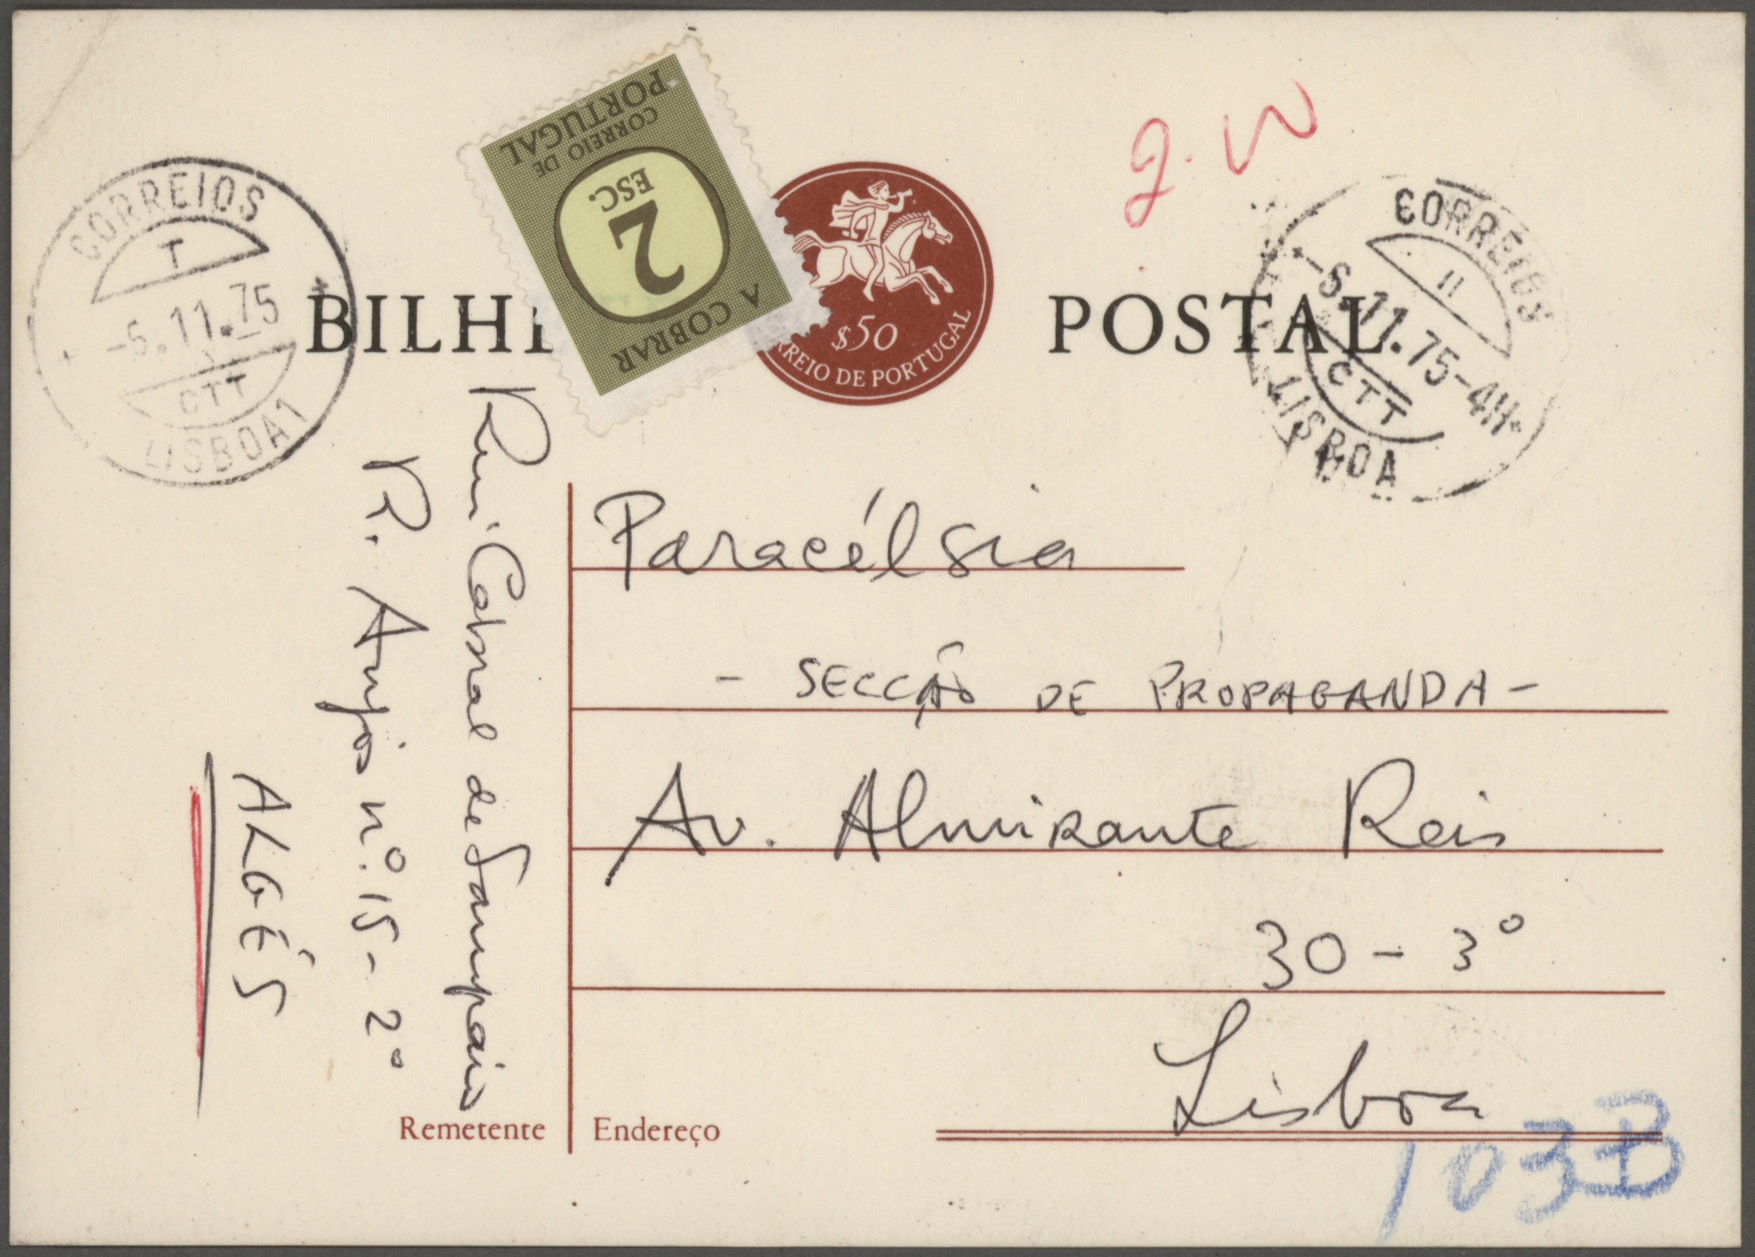 CORREIOS
T
-6.11.75
CTT
LISBOA 1
CORREIO DE
PORTUGAL
2
ESC.
A COBRAR
$50
CORREIO DE PORTUGAL
CORREIOS
11
-6.11.75-4H
CTT
LISBOA
BILHE
POSTAL
Rui Cabral de Sampaio
R. Anjos nº. 15-2º
ALGÉS
Paracélsia
- SECCÃO DE PROPAGANDA -
Av. Almirante Reis
30-3º
Lisboa
Remetente
Endereço
103B